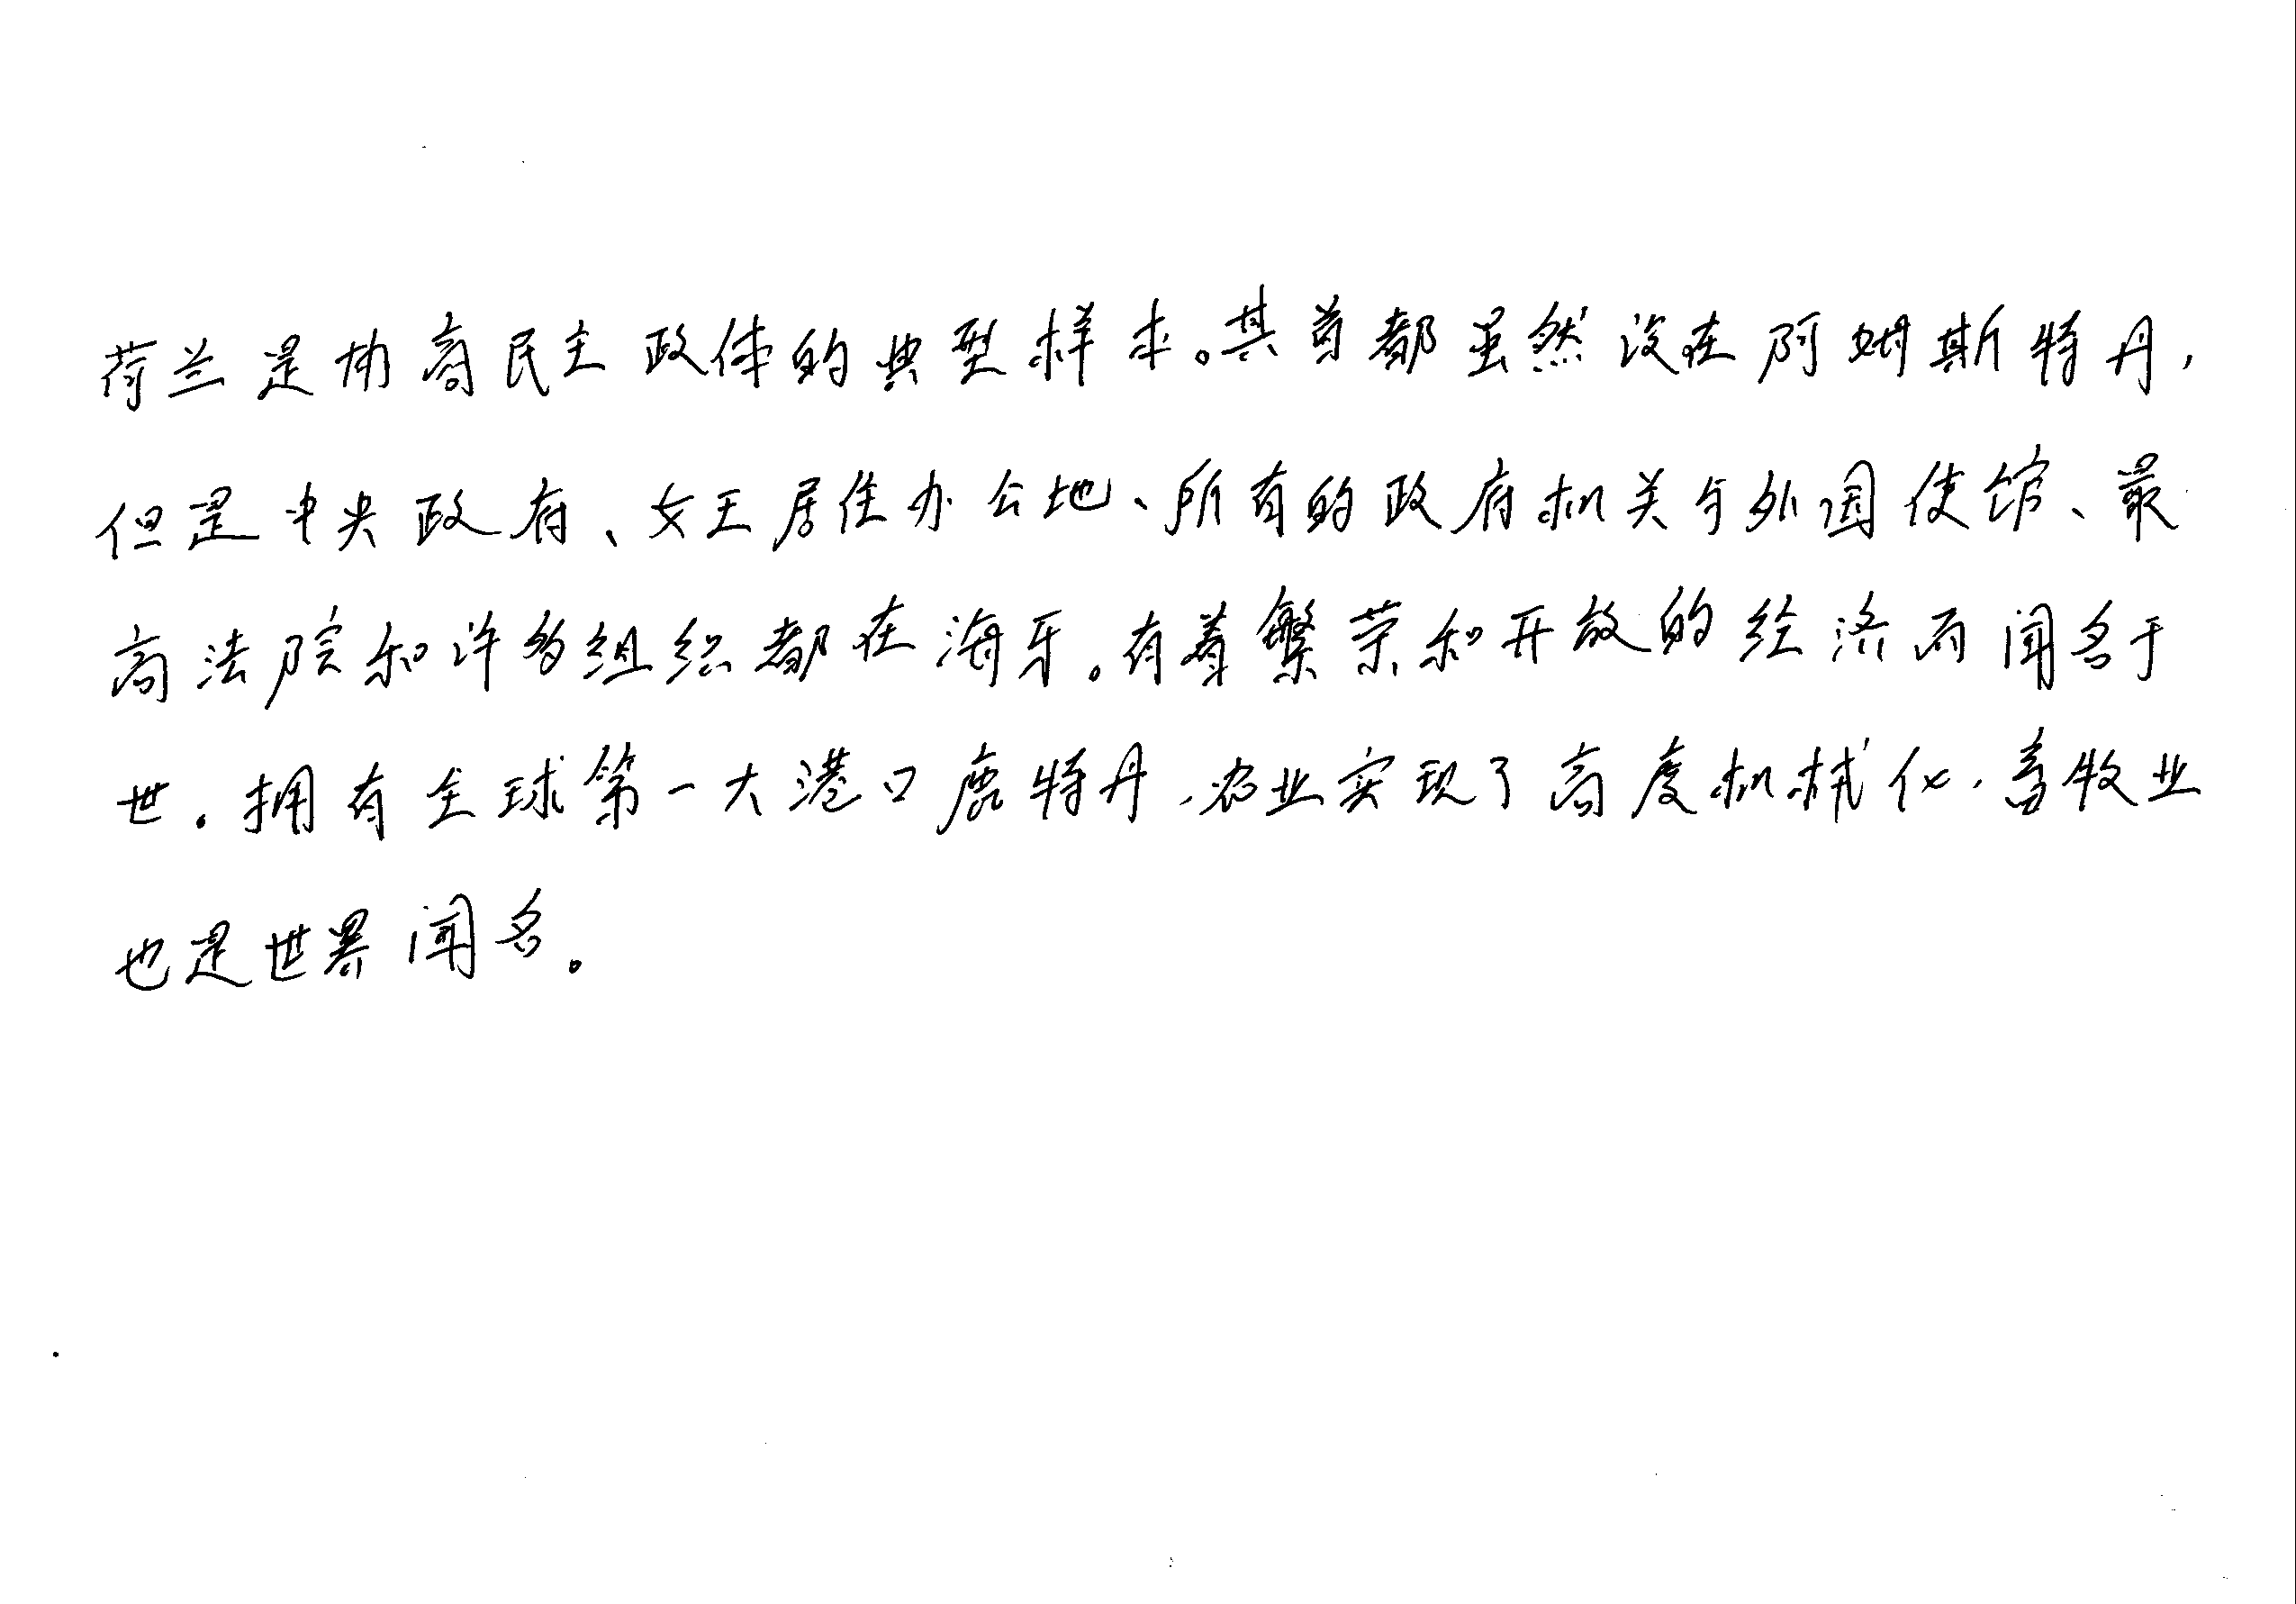 荷兰是协商民主政体的典型样本。其首都虽然设在阿姆斯特丹,
但是中央政府、女王居住办公地、所有的政府机关与外国使馆、最
高法院和许多组织都在海牙。有着繁荣和开放的经济而闻名于
世。拥有全球第一大港口鹿特丹,农业实现了高度机械化,畜牧业
也是世界闻名。